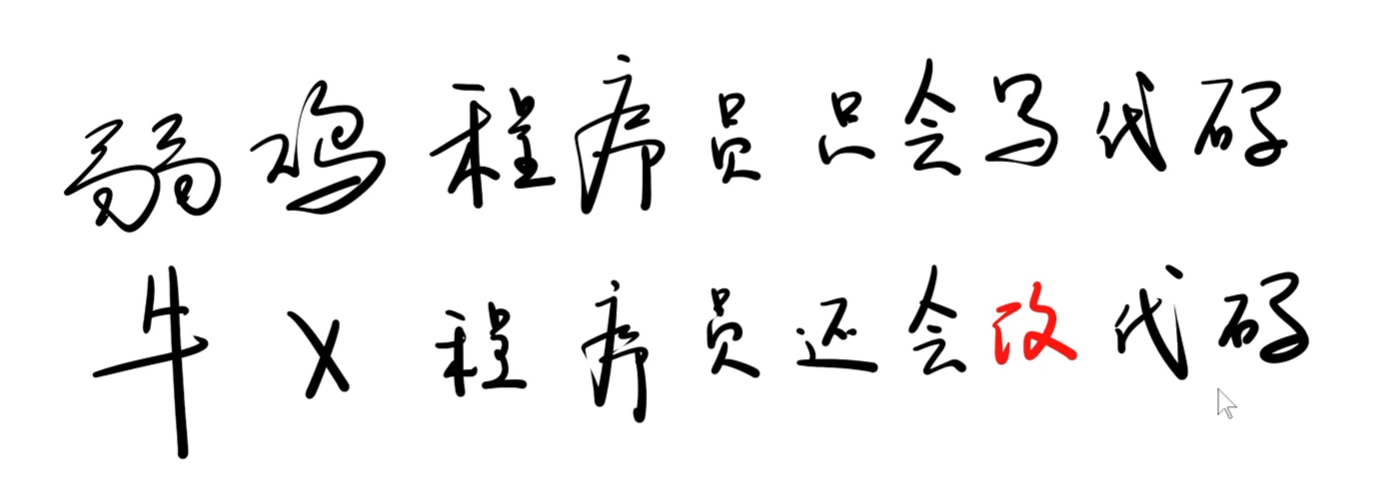 弱鸡程序员只会写代码
牛X程序员还会改代码